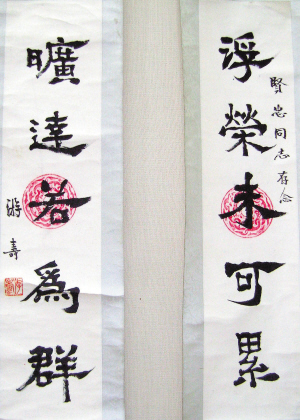 浮榮未可累
賢忠同志存念
曠達若為群
游壽